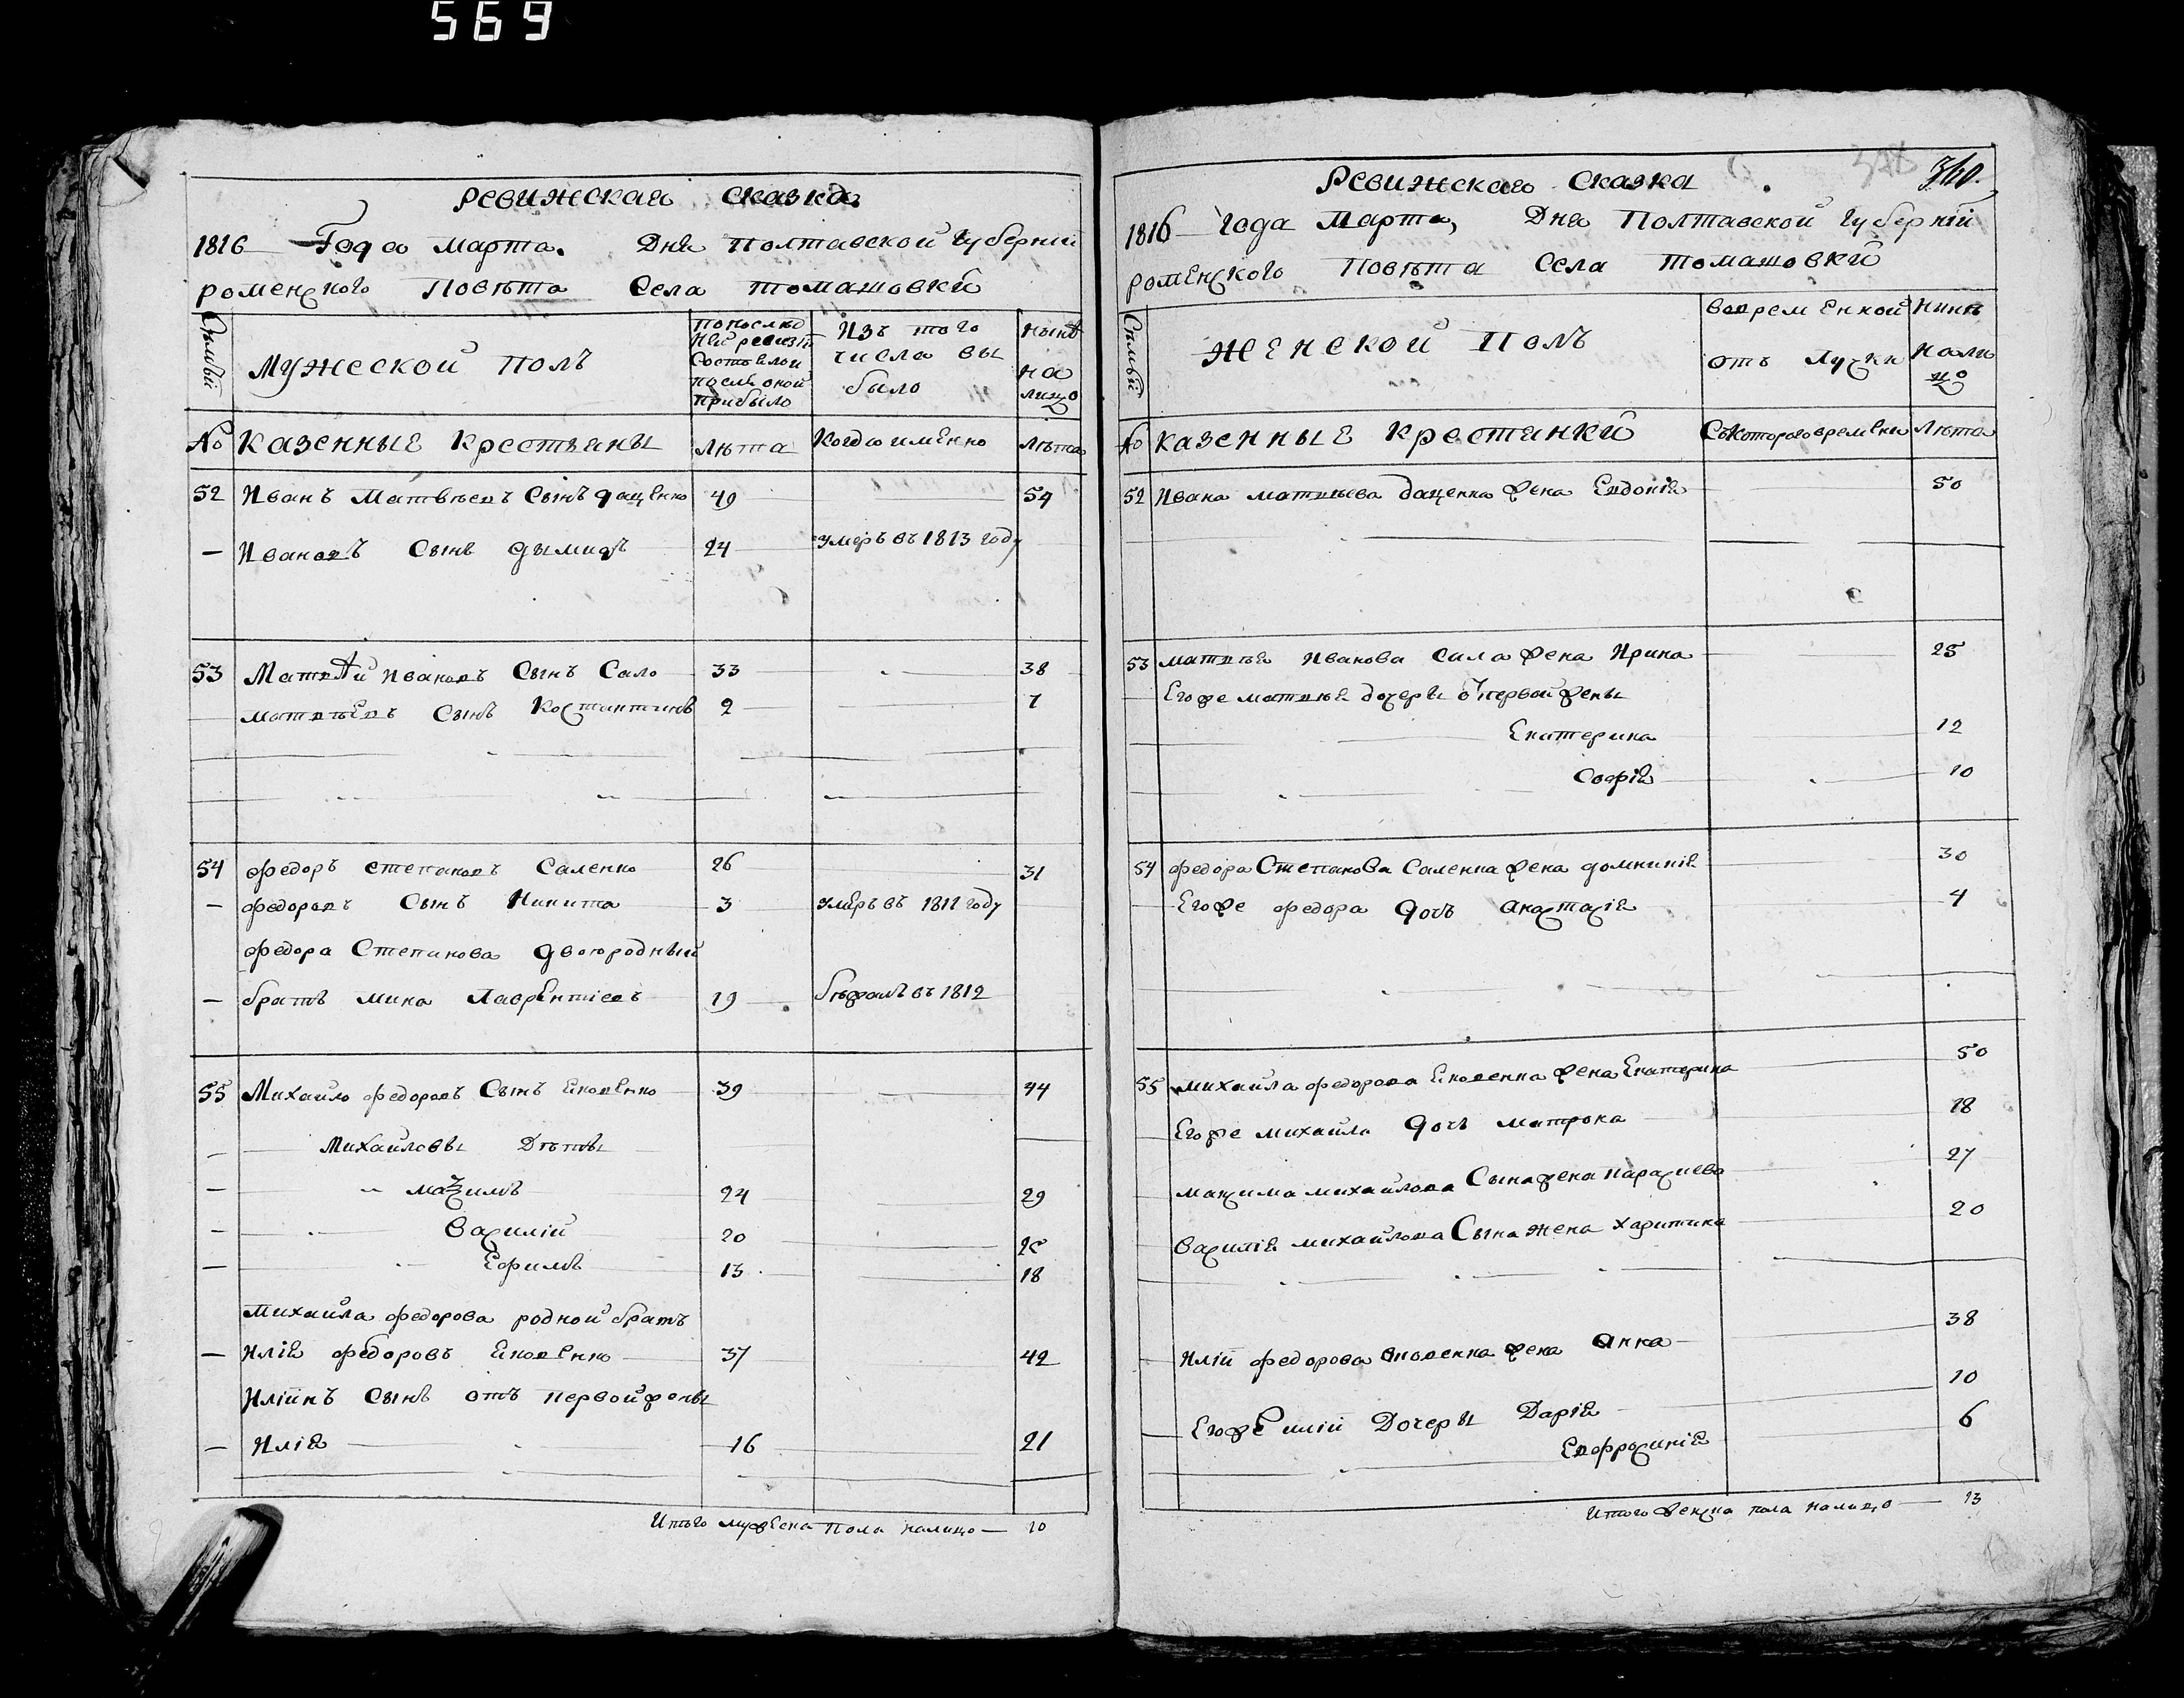 569
Ревижская сказка.
1816 Года марта. Дня Полтавской губернїи
роменского Повѣта Села томашовки
Мужеской полъ
Изъ того числа выбыло
нынѣ на лицо
№ Казенные Крестьяны Лѣта Когда именно Лѣта
52 Иванъ Матвѣевъ Сынъ даценко 49 54
— Ивановъ Сынъ дымидъ 24 умеръ въ 1813 году
53 Матвѣй Ивановъ Сынъ Сало 33 38
матвѣевъ Сынъ Костянтинъ 2 7
54 федоръ степановъ Саленко 26 31
— федоровъ Сынъ Никита 3 умеръ въ 1811 году
федора Степанова двоюродный
— братъ мина Лаврентїевъ 19 бѣжалъ въ 1812
55 Михайло федоровъ Сынъ Яковенко 39 44
— Михайловы Дѣти
— маѯимъ 24 29
— Василїй 20 25
— Ефимъ 13 18
михайла федорова родной братъ
— Илїя федоровъ Яковенко 37 42
Илїинъ Сынъ отъ первой жены
— Илїя 16 21
Итого мужеска пола налицо — 10
Ревижская Сказка
360.
1816 года Марта, Дня Полтавской губернїи
роменского Повѣта Села томашовки
Женской Полъ
Нинѣ налицо
№ казенные Крестянки Съ которого времени Лѣта
52 Ивана матвѣева даценка жена Евдокїя 50
53 матвѣя Иванова Сала жена Ирина 25
Его же матвѣя дочеры от первой жены
Екатерина 12
Софїя 10
54 федора Степанова Саленка жена домникїя 30
Его же федора дочь анастасїя 4
55 михайла федорова Яковенка жена Екатерина 50
Его же михайла дочь матрона 18
максима михайлова Сына жена парасиева 27
василїя михайлова Сына жена харитина 20
Илїи федорова Яковенка жена анна 38
Его же илїи Дочеры Дарїя 10
Евфросинїя 6
Итого женска пола налицо — 13